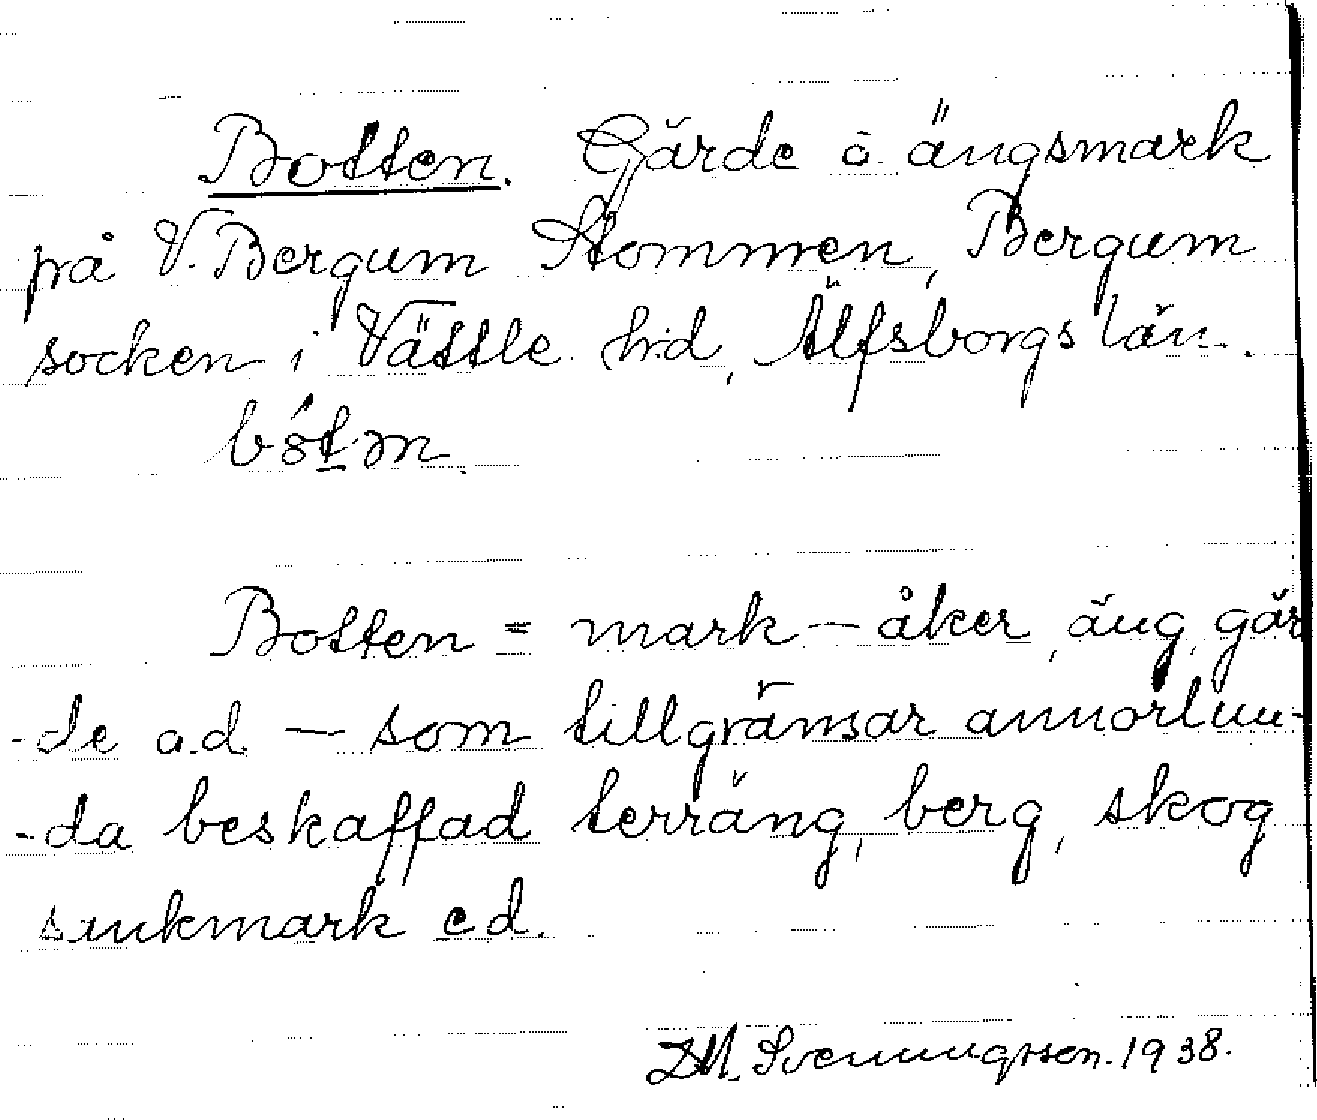 Botten. Gärde o. ängsmark
på V. Bergum Stommen, Bergum
socken i Vättle hd, Älfsborgs län.
Botten = mark — åker, äng, gär
-de a.d. — som tillgränsar annorlun-
-da beskaffad terräng, berg, skog
sinkmark ed.
Svenningsson. 1938.